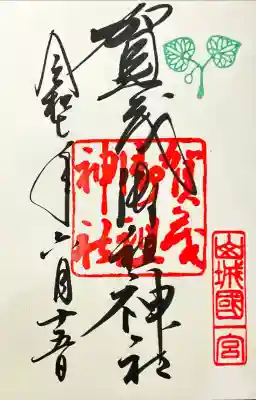 山城國一宮
賀茂御祖神社
賀茂御祖神社
令和七年六月十五日